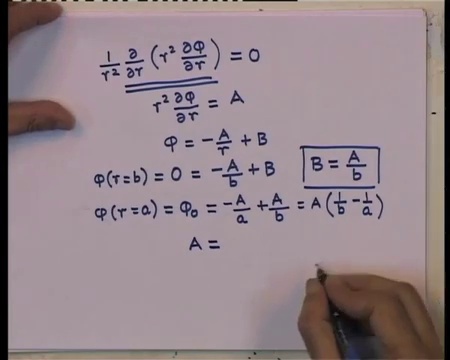 1/r² ∂/∂r (r² ∂φ/∂r) = 0
r² ∂φ/∂r = A
φ = -A/r + B
φ(r=b) = 0 = -A/b + B
B = A/b
φ(r=a) = φ₀ = -A/a + A/b = A(1/b - 1/a)
A =